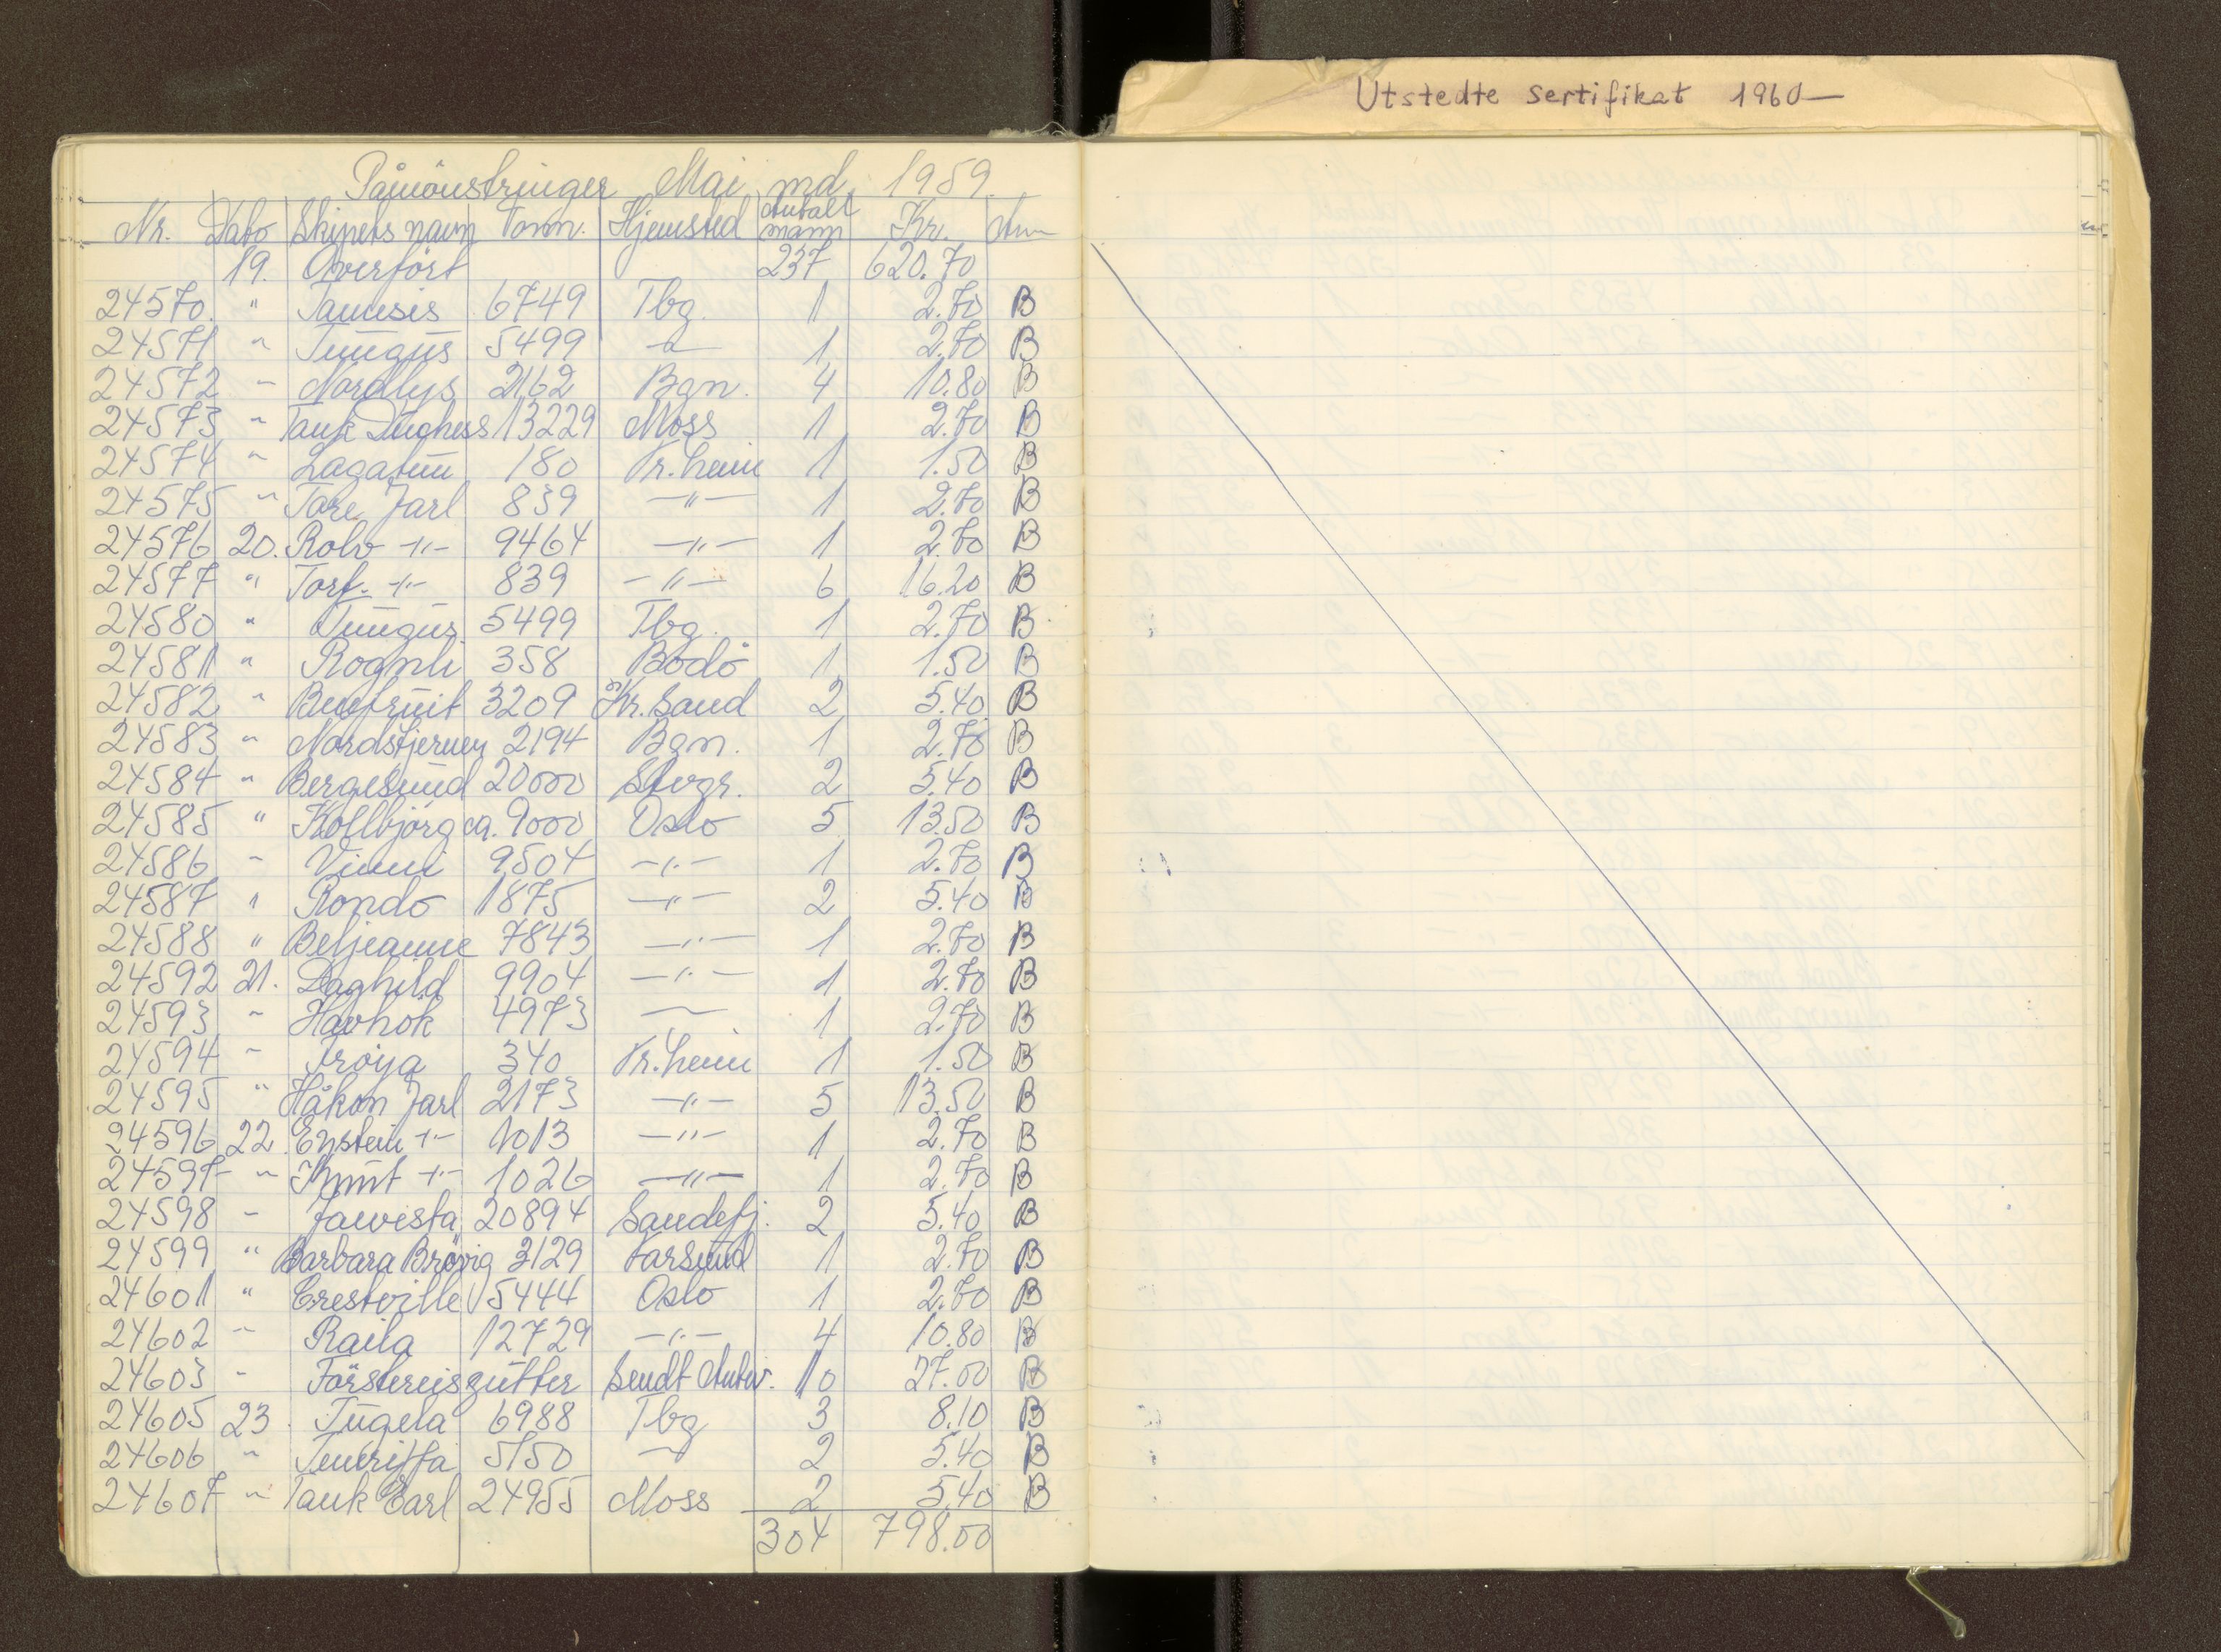 Utstedte sertifikat 1960—
Påmönstringer Mai md. 1959.
Nr. Dato Skipets navn Tonn. Hjemsted Antall mann Kr. Anm
19. Överfört 237 620.70
24570. " Tamesis 6749 Tbg. 1 2.70 B
24571 " Tungus 5499 —"— 1 2.70 B
24572 " Nordlys 2162 Bgn. 4 10.80 B
24573 " Tank Duchess 13229 Moss 1 2.70 B
24574 " Lagatun 180 Tr.heim 1 1.50 B
24575 " Tore Jarl 839 —"— 1 2.70 B
24576 20. Rolv —"— 9464 —"— 1 2.70 B
24577 " Torf. —"— 839 —"— 6 16.20 B
24580 " Tungus 5499 Tbg. 1 2.70 B
24581 " Rognli 358 Bodö 1 1.50 B
24582 " Benfruit 3209 Kr.Sand 2 5.40 B
24583 " Nordstjernen 2194 Bgn. 1 2.70 B
24584 " Bergesund 20000 Stvgr. 2 5.40 B
24585 " Kollbjörg ca. 9000 Oslo 5 13.50 B
24586 " Vinni 9504 —"— 1 2.70 B
24587 " Rondo 1875 —"— 2 5.40 B
24588 " Beljeanne 7843 —"— 1 2.70 B
24592 21. Daghild 9904 —"— 1 2.70 B
24593 " Havhok 4973 —"— 1 2.70 B
24594 " Fröya 340 Tr.heim 1 1.50 B
24595 " Håkon Jarl 2173 —"— 5 13.50 B
24596 22. Eystein —"— 1013 —"— 1 2.70 B
24597 " Knut —"— 1026 —"— 1 2.70 B
24598 " Jawesta 20894 Sandefj. 2 5.40 B
24599 " Barbara Brövig 3129 Farsund 1 2.70 B
24601 " Crestville 5444 Oslo 1 2.70 B
24602 " Raila 12729 —"— 4 10.80 B
24603 " Förstereisgutter Sendt Antw. 10 27.00 B
24605 23. Tugela 6988 Tbg 3 8.10 B
24606 " Teneriffa 5150 —"— 2 5.40 B
24607 " Tank Earl 24955 Moss 2 5.40 B
304 798.00